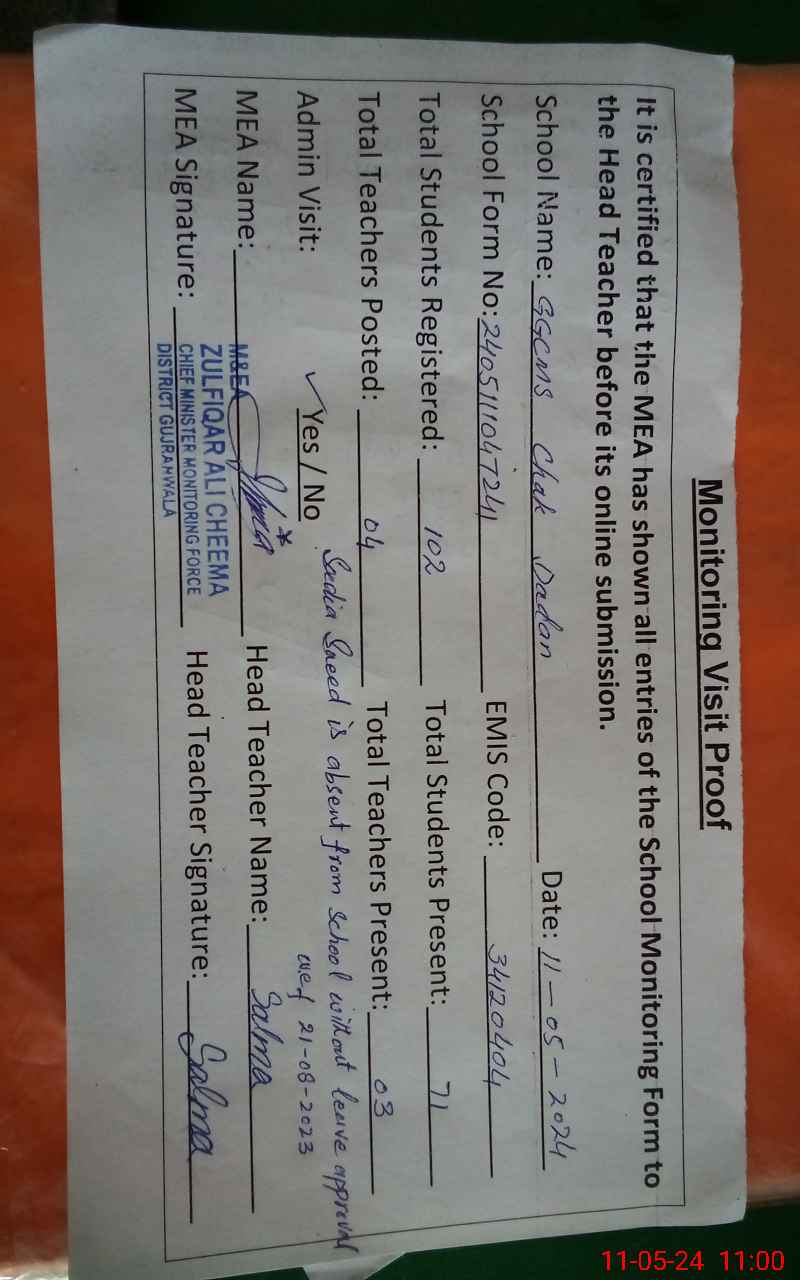 Monitoring Visit Proof
It is certified that the MEA has shown all entries of the School Monitoring Form to
the Head Teacher before its online submission.
School Name: GGCMS Chak Dadan Date: 11-05-2024
School Form No: 2405111047241 EMIS Code: 34120404
Total Students Registered: 102 Total Students Present: 71
Total Teachers Posted: 04 Total Teachers Present: 03
* Sadia Saeed is absent from School without leave approval
wef 21-08-2023
Admin Visit: ✓ Yes / No
MEA Name: Head Teacher Name: Salma
M&EA
ZULFIQAR ALI CHEEMA
CHIEF MINISTER MONITORING FORCE
DISTRICT GUJRANWALA
MEA Signature: Head Teacher Signature: Salma
11-05-24 11:00